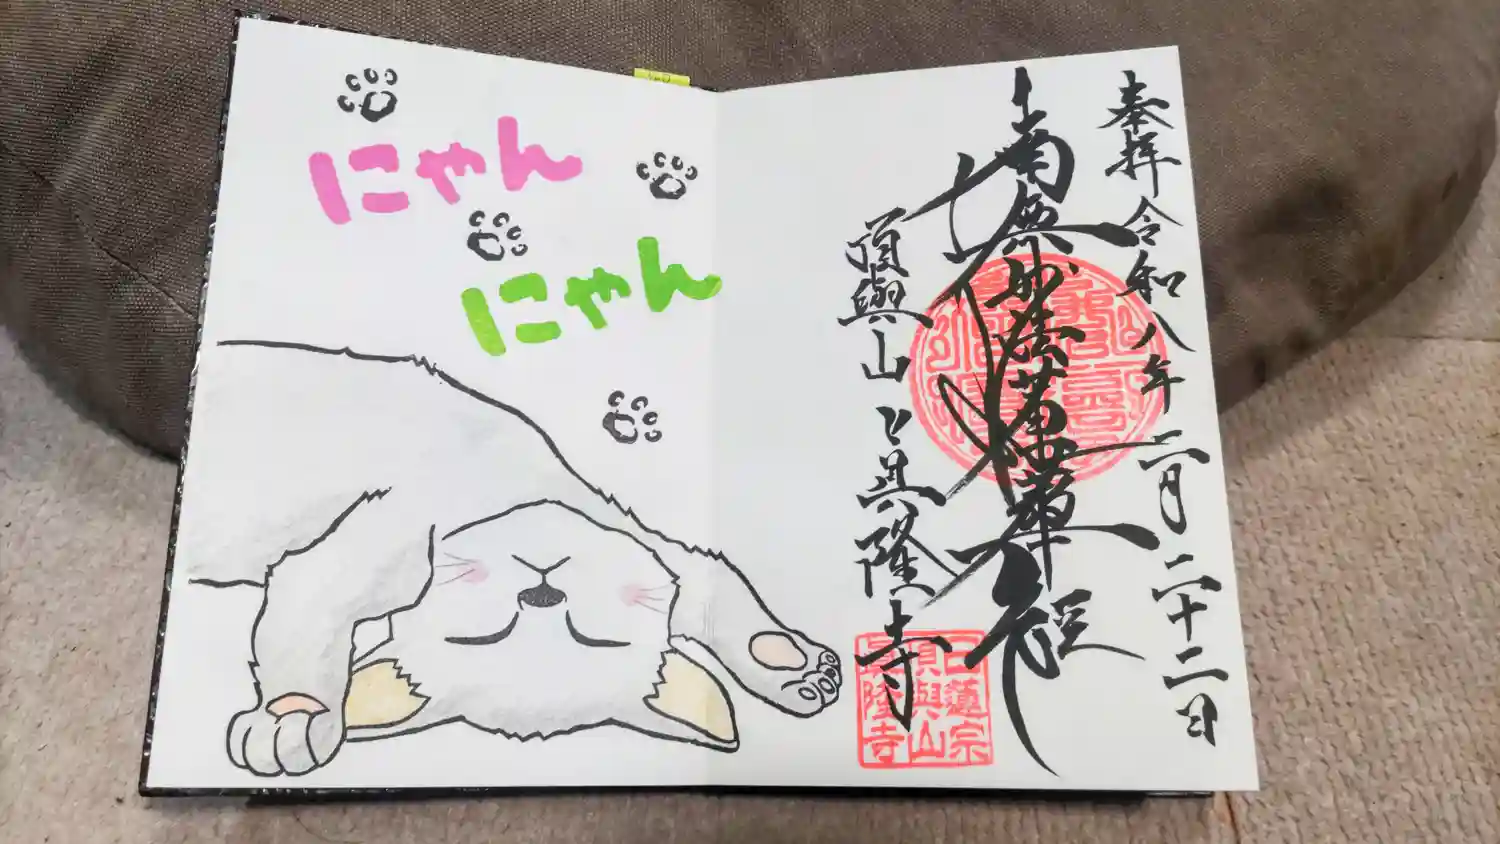 奉拝 令和八年 二月二十二日
南無妙法蓮華経
頂與山 具隆寺
日蓮宗
頂與山
具隆寺
にゃん
にゃん